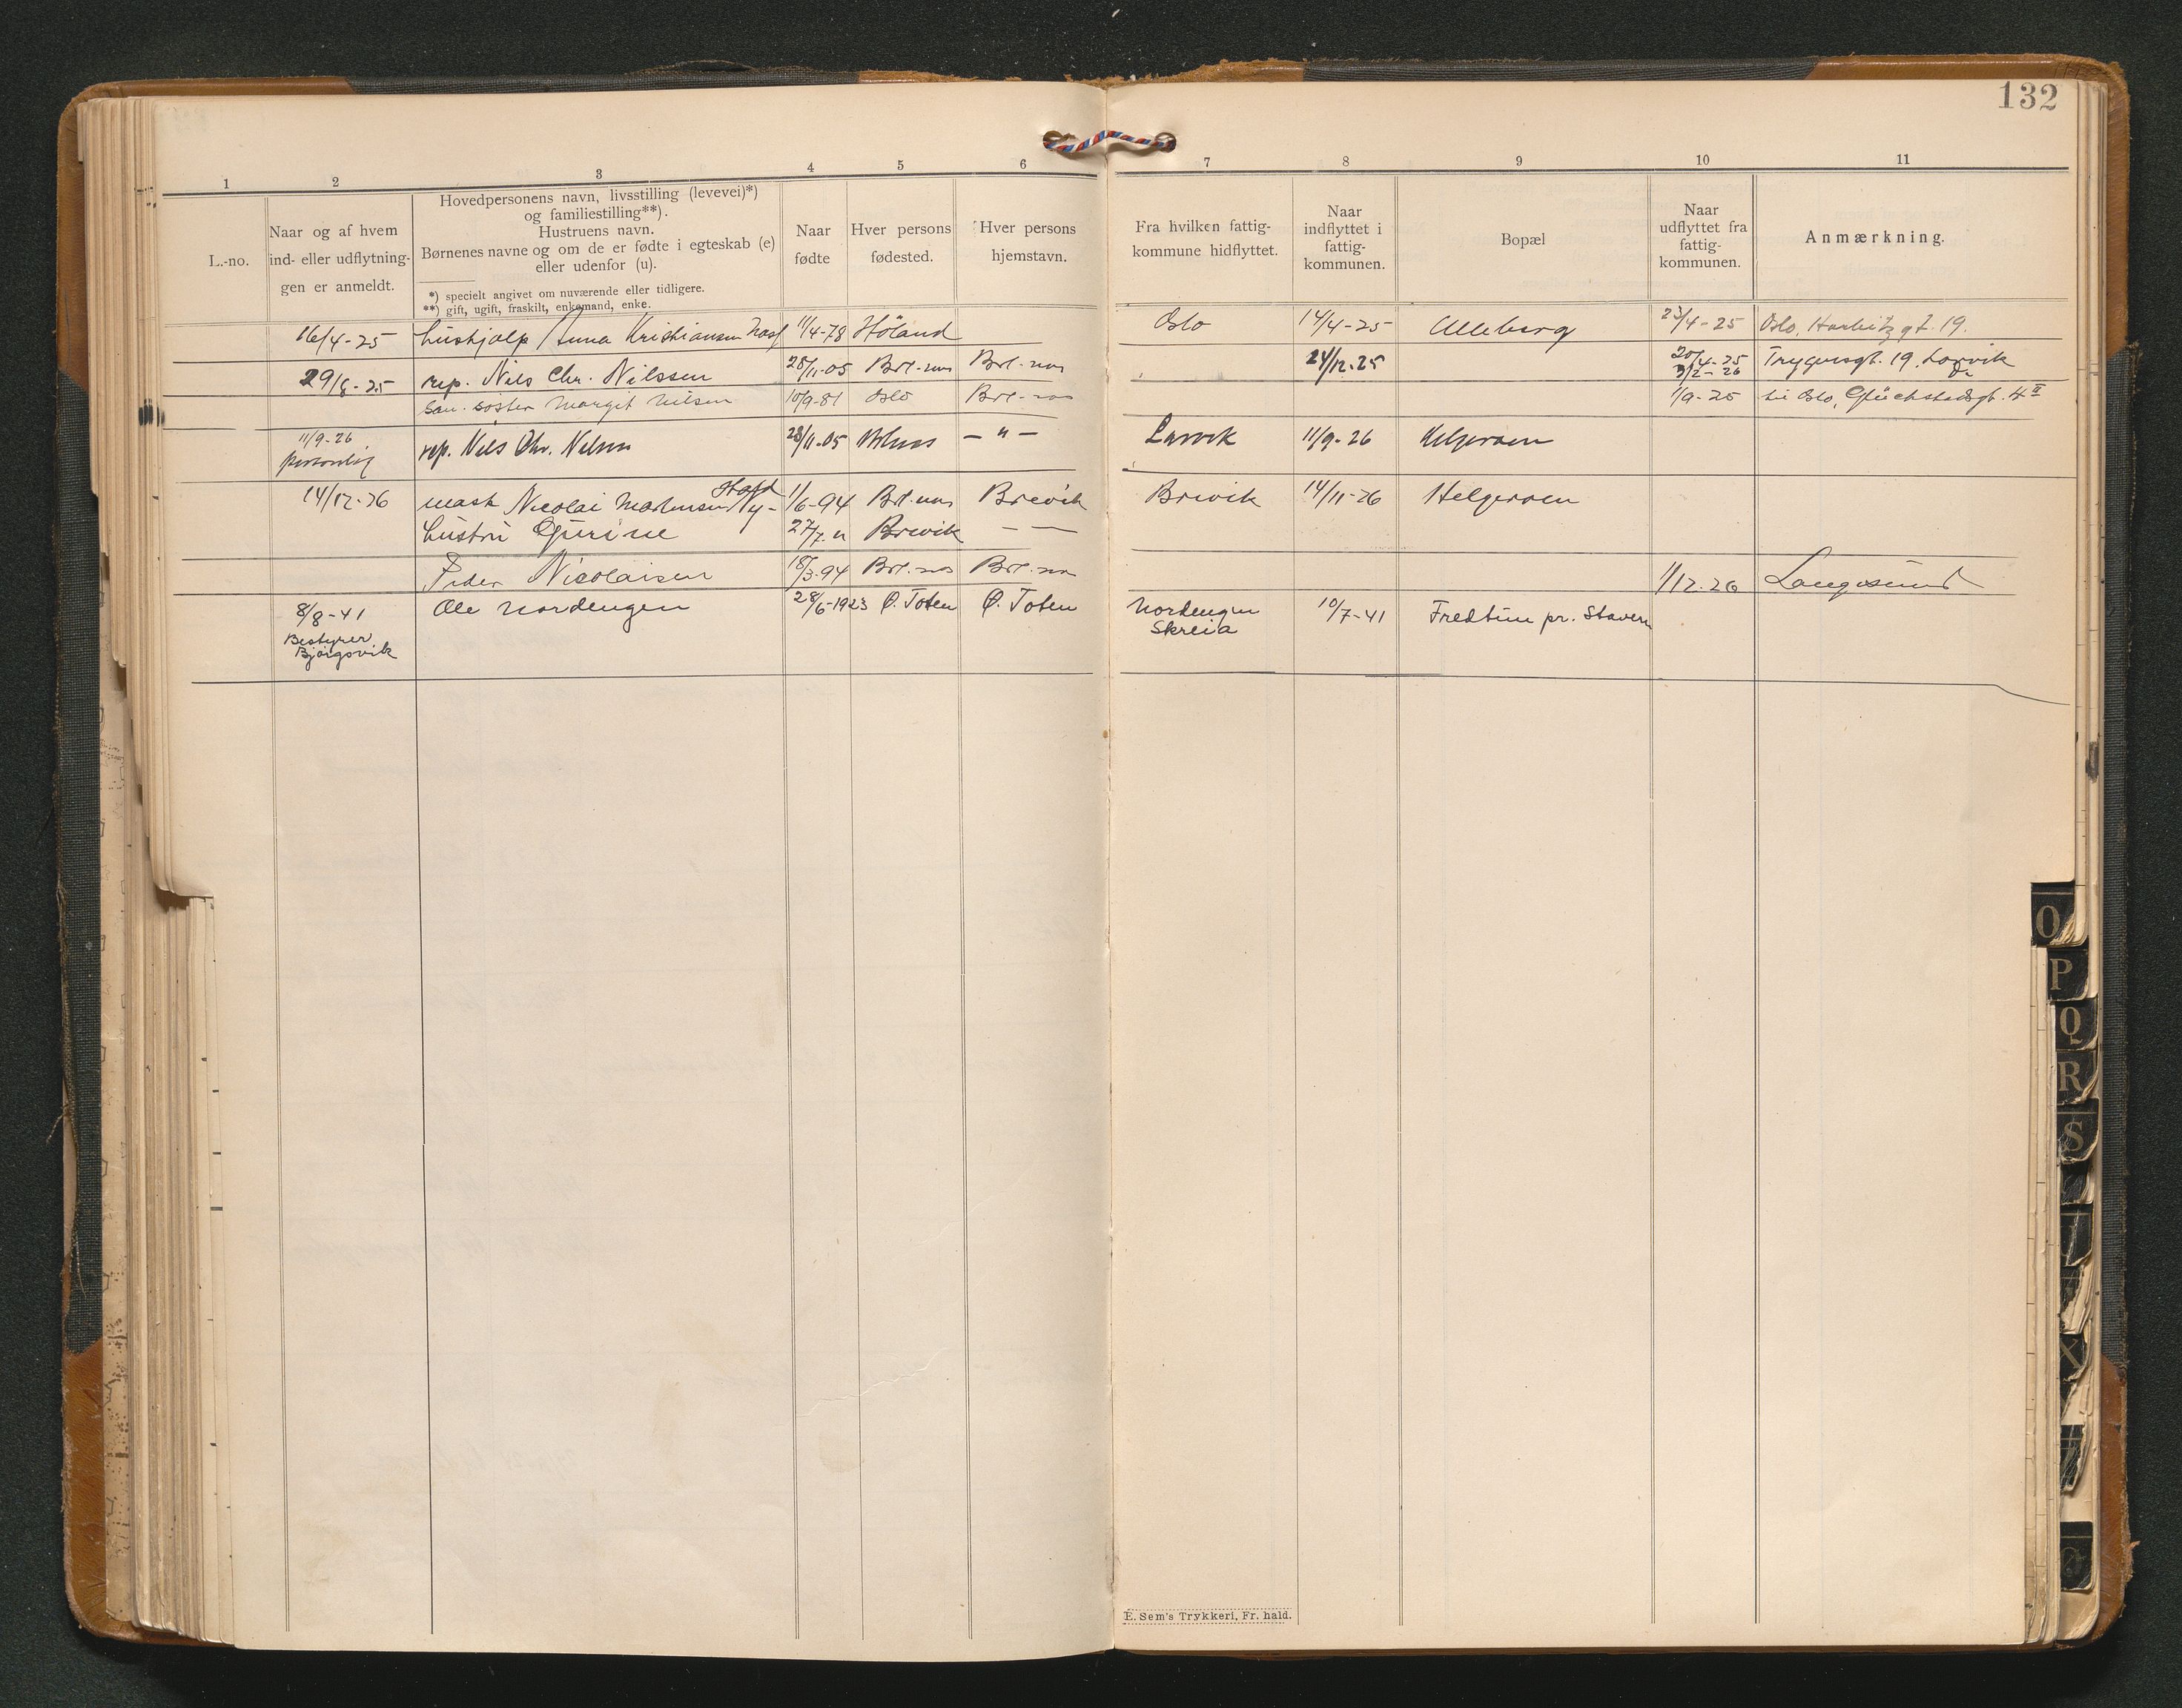 132
1 2 3 4 5 6 7 8 9 10 11
L.-no.
Naar og af hvem
ind- eller udflytnin-
gen er anmeldt.
Hovedpersonens navn, livsstilling (levevei)*)
og familiestilling**).
Hustruens navn.
Børnenes navne og om de er fødte i egteskab (e)
eller udenfor (u).
*) specielt angivet om nuværende eller tidligere.
**) gift, ugift, fraskilt, enkemand, enke.
Naar
fødte
Hver persons
fødested.
Hver persons
hjemstavn.
Fra hvilken fattig-
kommune hidflyttet.
Naar
indflyttet i
fattig-
kommunen.
Bopæl
Naar
udflyttet fra
fattig-
kommunen.
Anmærkning.
16/4-25 hushjælp Anna Kristiansen 11/4-78 Höland Oslo 14/4-25 23/4-25 Oslo, Harbitzgt. 19.
29/8-25 rep. Nils Chr. Nilssen 28/11-05 Brl.nes Brl.nes 24/12.25 20/4-25 Trygvesgt. 19, Larvik
3/2-26
søster Margit Nilsen 10/9-81 Oslo Brl-nes 1/9-25 til Oslo, Glückstadsgt. 4 II
11/9-26 rep. Nils Chr. Nelsen 28/11-05 Brlnes - " - Larvik 11/9-26 Helgeroen
personlig
14/12-26 mask Nicolai Martinsen 1/6-94 Brl.nes Brevik Brevik 14/11-26 Helgeroen
hustru Gurine 27/7. " Brevik — —
Peder Nicolaisen 18/3-94 Brl.nes Brl.nes 1/12.26 Langesund
8/8-41 Ole Nordengen 28/6-1923 Ø. Toten Ø. Toten Nordengen 10/7-41 Fredtun pr. Stavern
Skreia
Bestyrer
Bjørgsvik
E. Sem's Trykkeri, Fr. hald.
O
P
Q
R
S
X